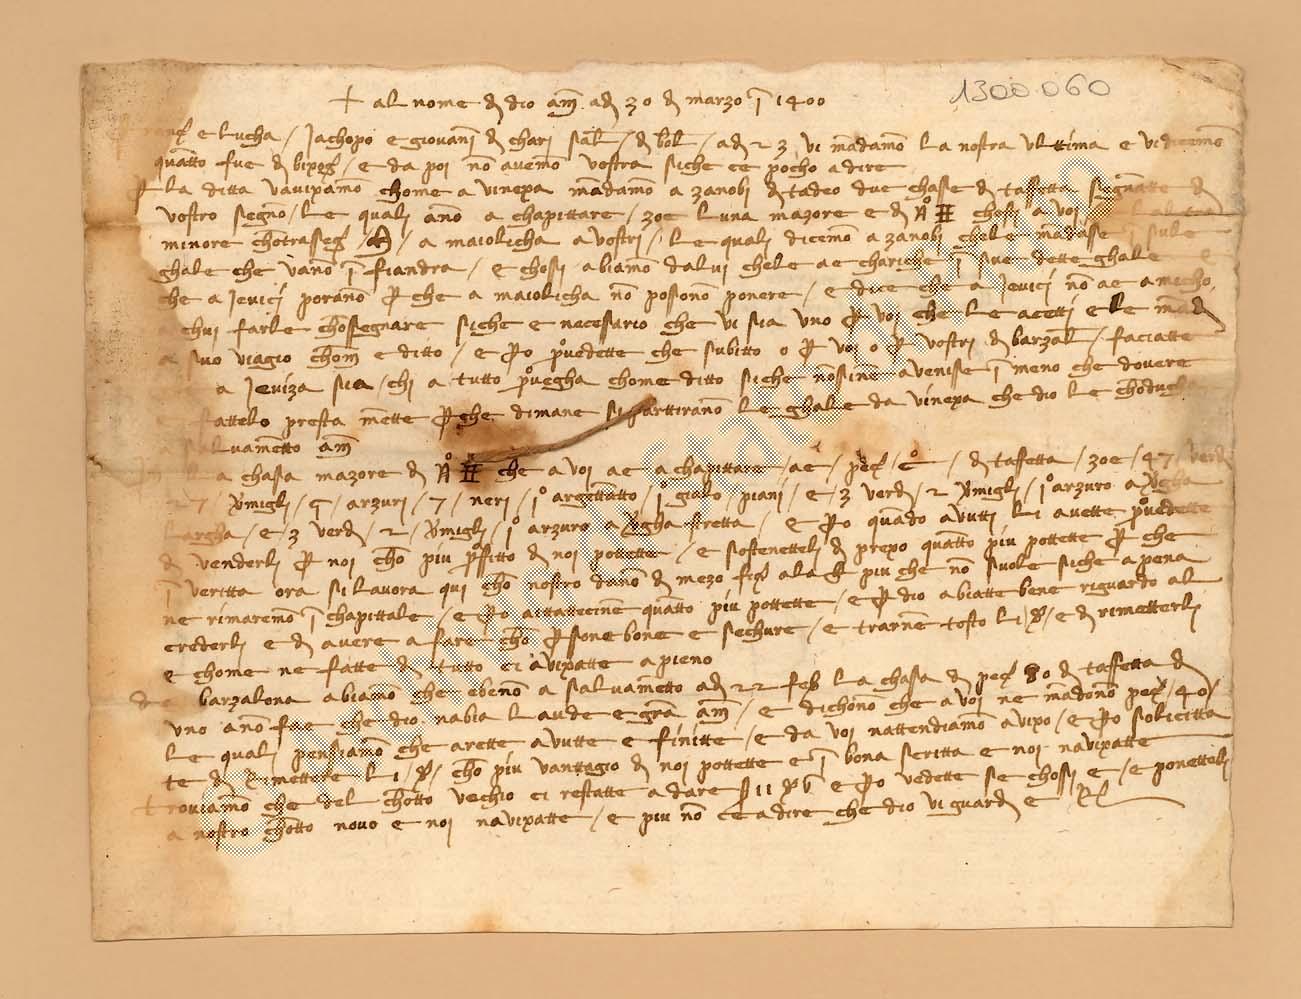 1300.060
+ al nome d dio am̄ ad 30 d marzo ī 1400
e lucha / Jachopo e giovanī d chari / d bol / ad 23 vi mādamo la nostra ulttima e vi dicemo
quātto fue d bixog / e da poi nō avemo vostra siche ce pocho a dire
p la ditta vavixamo chome a vinexa mādamo a zanobi d tadeo due chasse d taffetta segnatte d
vostro segno / le quali ano a chapittare / zoe luna mazore e d N° II chossi a voi
minore chōtrasseg / a maiolicha a vostri / le quali dicemo a zanobi che le mādasse ī sule
ghale che vano ī fiandra / e chossi abiamo da lui che le ae chariche ī sue dette ghale e
che a Jevici porano p che a maiolicha nō possono ponere / e due che a Jevici nō ae amicho
a chui farle chōssegnare siche e necesario che vi sia uno p voi che le acetti e le mād
a suo viagio chom e ditto / e po pvedette che subitto o p voi o p vostri d barzal / faciatte
a Jeviza sia / chi a tutto pvegha chome ditto siche nō avenisse ī meno che dovere
fattelo presta mette p che dimane si parttirano le ghale da vinexa che dio le chōducha
a salvametto am̄
la chasa mazore d N° II che a voi ae a chapittare / ae / pec / / d taffetta / zoe / 47 / verd
27 / vmigli / 9 / arzuri / 7 / neri / 1° argettatto / 1° gialo / piani / e / 3 verd / 2 vmigli / 1° arzuro a vgha
largha / e 3 verd / 2 / vmigli / 1° arzuro a vgha stretta / e po quādo avutti li avette pvedette
d venderli p noi chō piu pfitto d noi pottette / e sostenetteli d prexo quātto piu pottette p che
ī veritta ora si lavora qui chō nostro dano d mezo fio ala piu che nō suole siche a pena
ne rimaremo ī chapittale / e po quātto piu pottette / e p dio abiatte bene riguardo al
crederli e d avere a fare chō psone bone e sechure / e trarne tosto li / e d rimetterli
e chome ne fatte d tutto ci avixatte a pieno
da barzalona abiamo che ebeno a salvametto ad 22 feb la chasa d pec 80 d taffetta d
uno ano fae che dio nabia laude e gra am̄ / e dichono che a voi ne mādono pec / 40 /
le quali pensiamo che arette avutte e finitte / e da voi nattendiamo avixo / e po solicitta
te d rimettere li / chō piu vantagio d noi pottette e ī bona scritta e noi navixatte
trovamo che del chōtto vechio ci restatte a dare e po vedette se chossi e / e ponetteli
a nostro chōtto novo e noi navixatte / e piu nō ce a dire che dio vi guard e